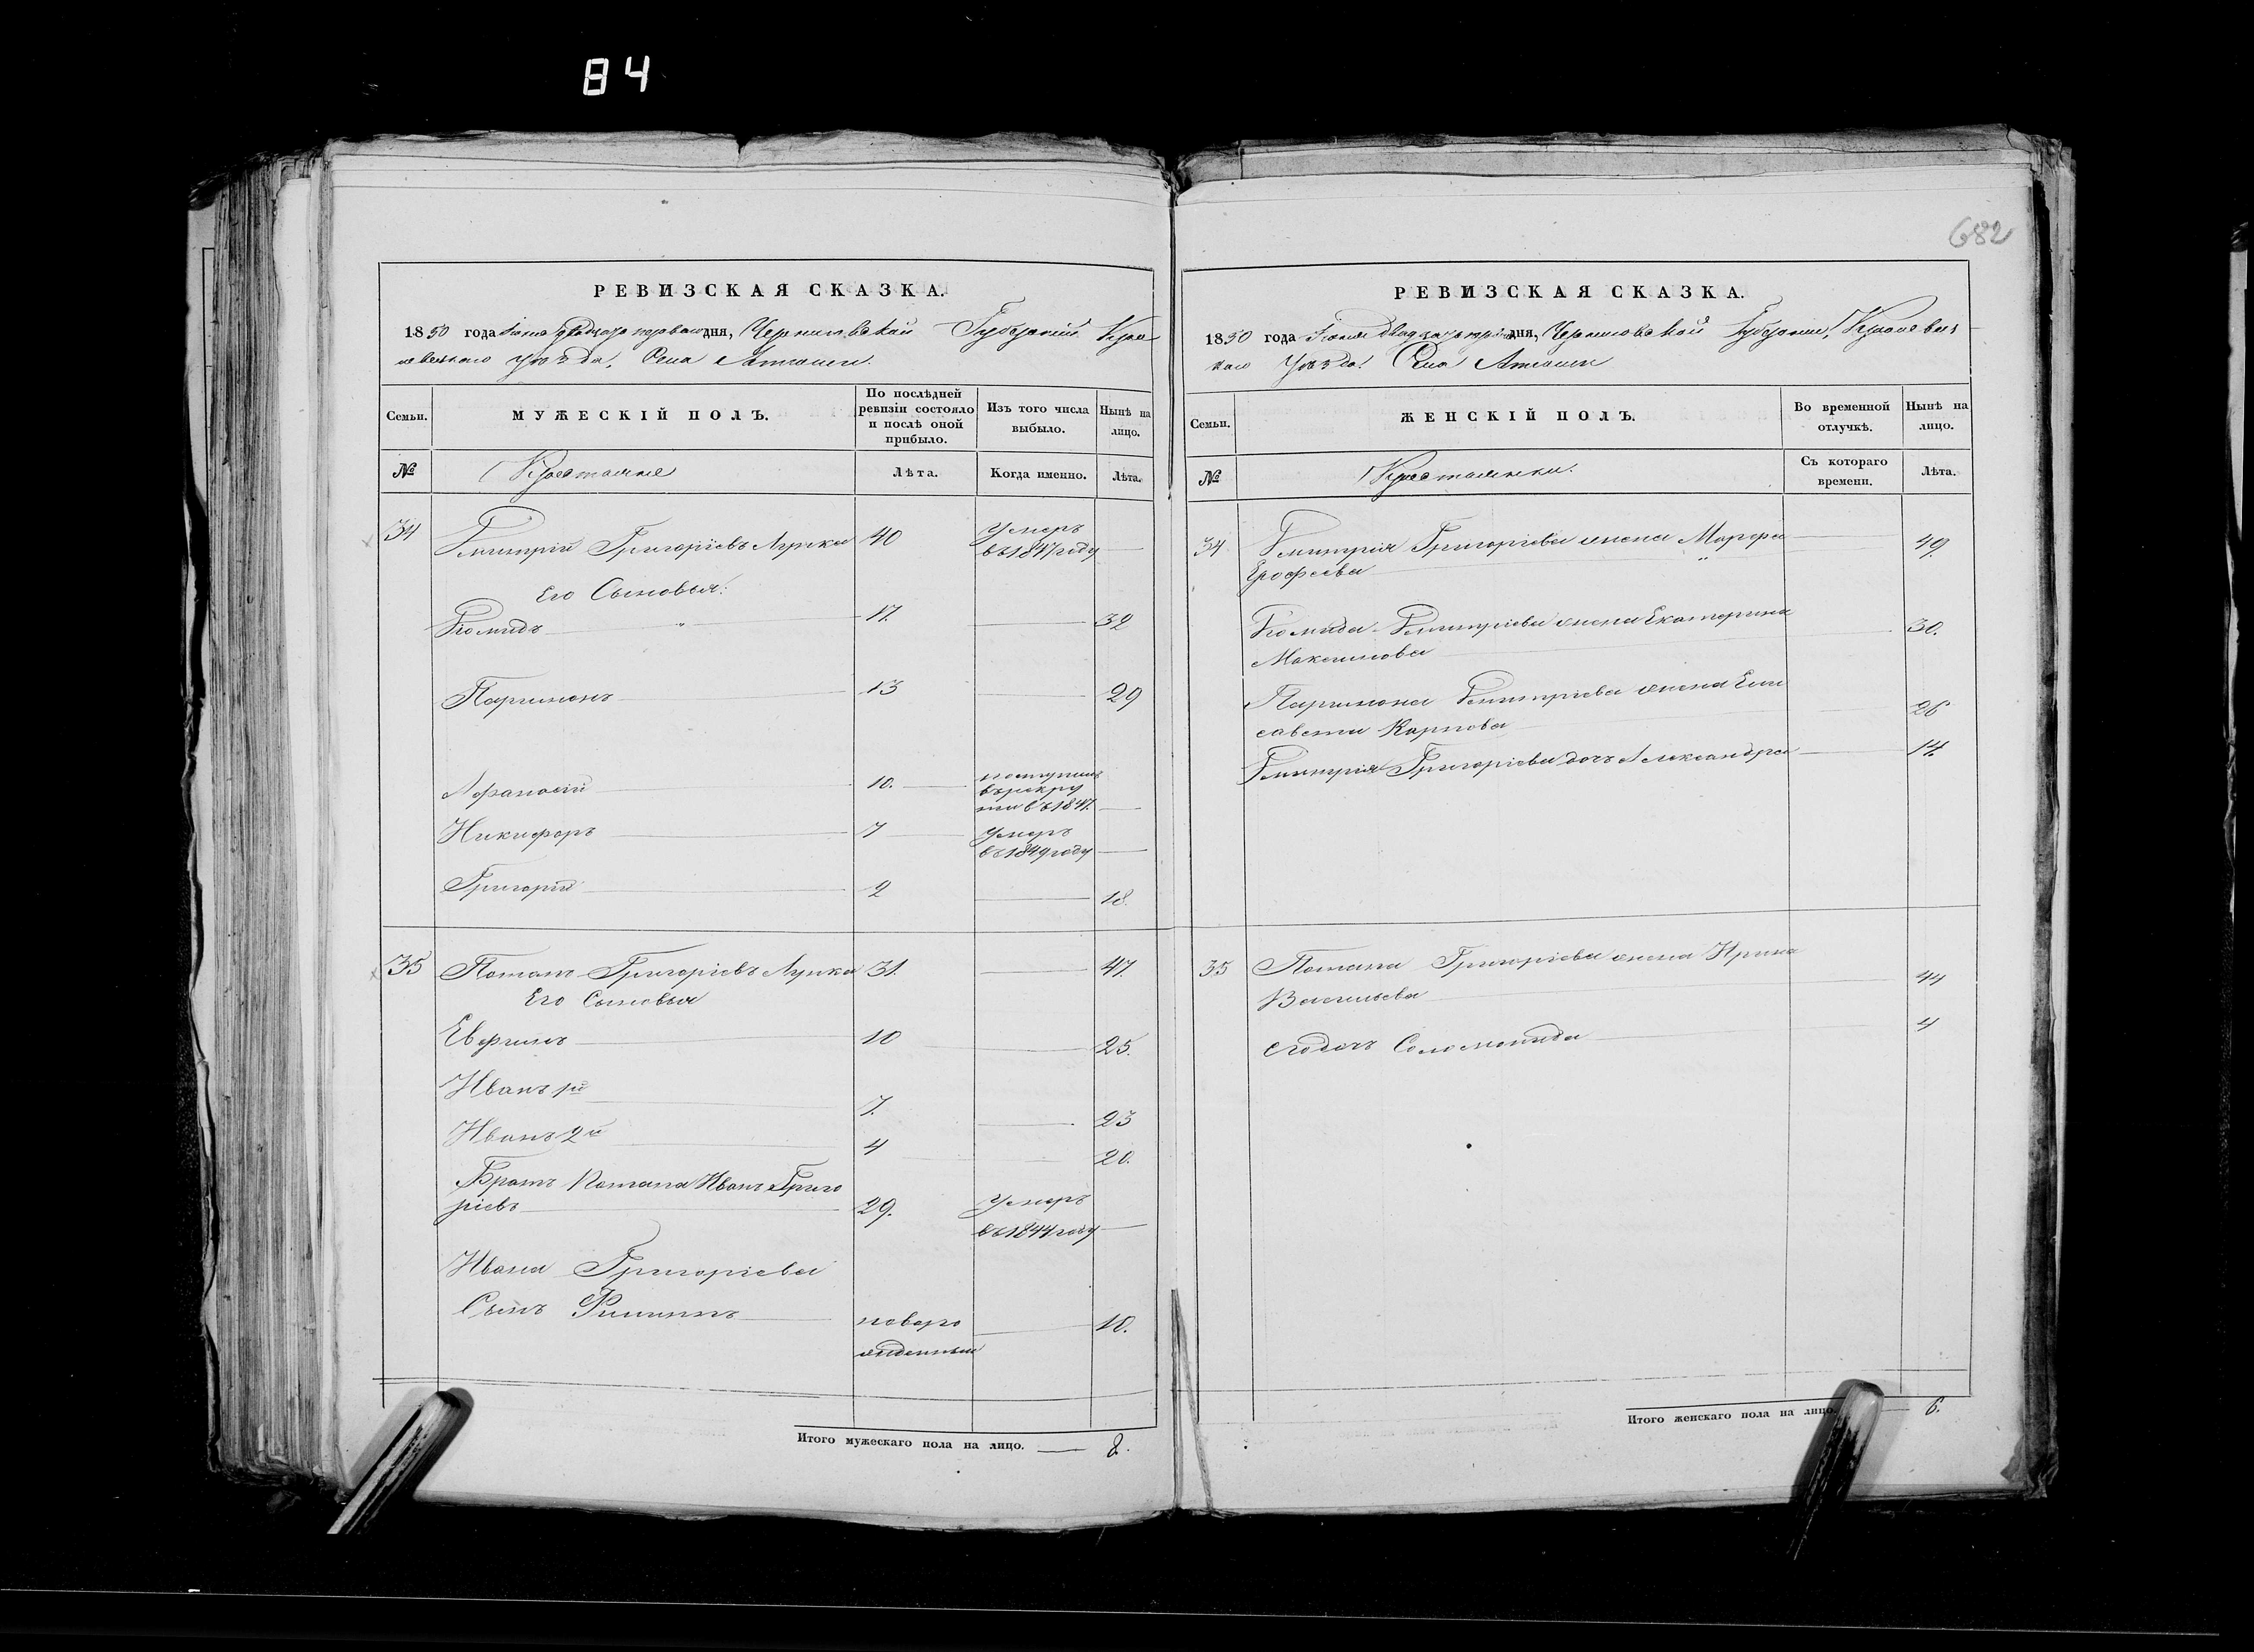 84
682
РЕВИЗСКАЯ СКАЗКА.
1850 года Іюня двадцать перваго дня, Черниговской Губерніи Кроле
вецкаго уѣзда, Села Алтынли.
Семьи.
МУЖЕСКІЙ ПОЛЪ.
По послѣдней
ревизіи состояло
и послѣ оной
прибыло.
Изъ того числа
выбыло.
Нынѣ на
лицо.
№
Крестьяне
Лѣта.
Когда именно.
Лѣта.
34 Дмитрій Григоріевъ Лунка 40 Умеръ
въ 1847 году
Его Сыновья:
Діомидъ 17. 32
Паримонъ 13 29
Афанасій 10. поступилъ
въ рекру
ти въ 1847.
Никифоръ 7 Умеръ
въ 1849 году
Григорій 2 18.
35 Потапъ Григоріевъ Лунка 31. 47.
Его Сыновья
Евфимъ 10 25.
Иванъ 1й 7. 23
Иванъ 2й 4 20.
Братъ Потапа Иванъ Григо
ріевъ 29. Умеръ
въ 1844 году
Ивана Григоріева
Сынъ Филипъ новоро 10.
жденный
Итого мужескаго пола на лицо. 8.
РЕВИЗСКАЯ СКАЗКА.
1850 года Іюня двадцать перваго дня, Черниговской Губерніи, Кролевец
каго Уѣзда. Села
Семьи.
ЖЕНСКІЙ ПОЛЪ.
Во временной
отлучкѣ.
Нынѣ на
лицо.
№
Крестьянки.
Съ котораго
времени.
Лѣта.
34 Дмитрія Григоріева жена Марфа 49.
Ерофеева
Діомида Дмитріева жена Екатерина 30.
Максимова
Паримона Дмитріева жена Ели
савета Карпова 26
Дмитрія Григоріева дочь Александра 14.
35 Потапа Григоріева жена Ирина
Васильева 44
его дочь Соломонида 4
Итого женскаго пола на лицо. 6.